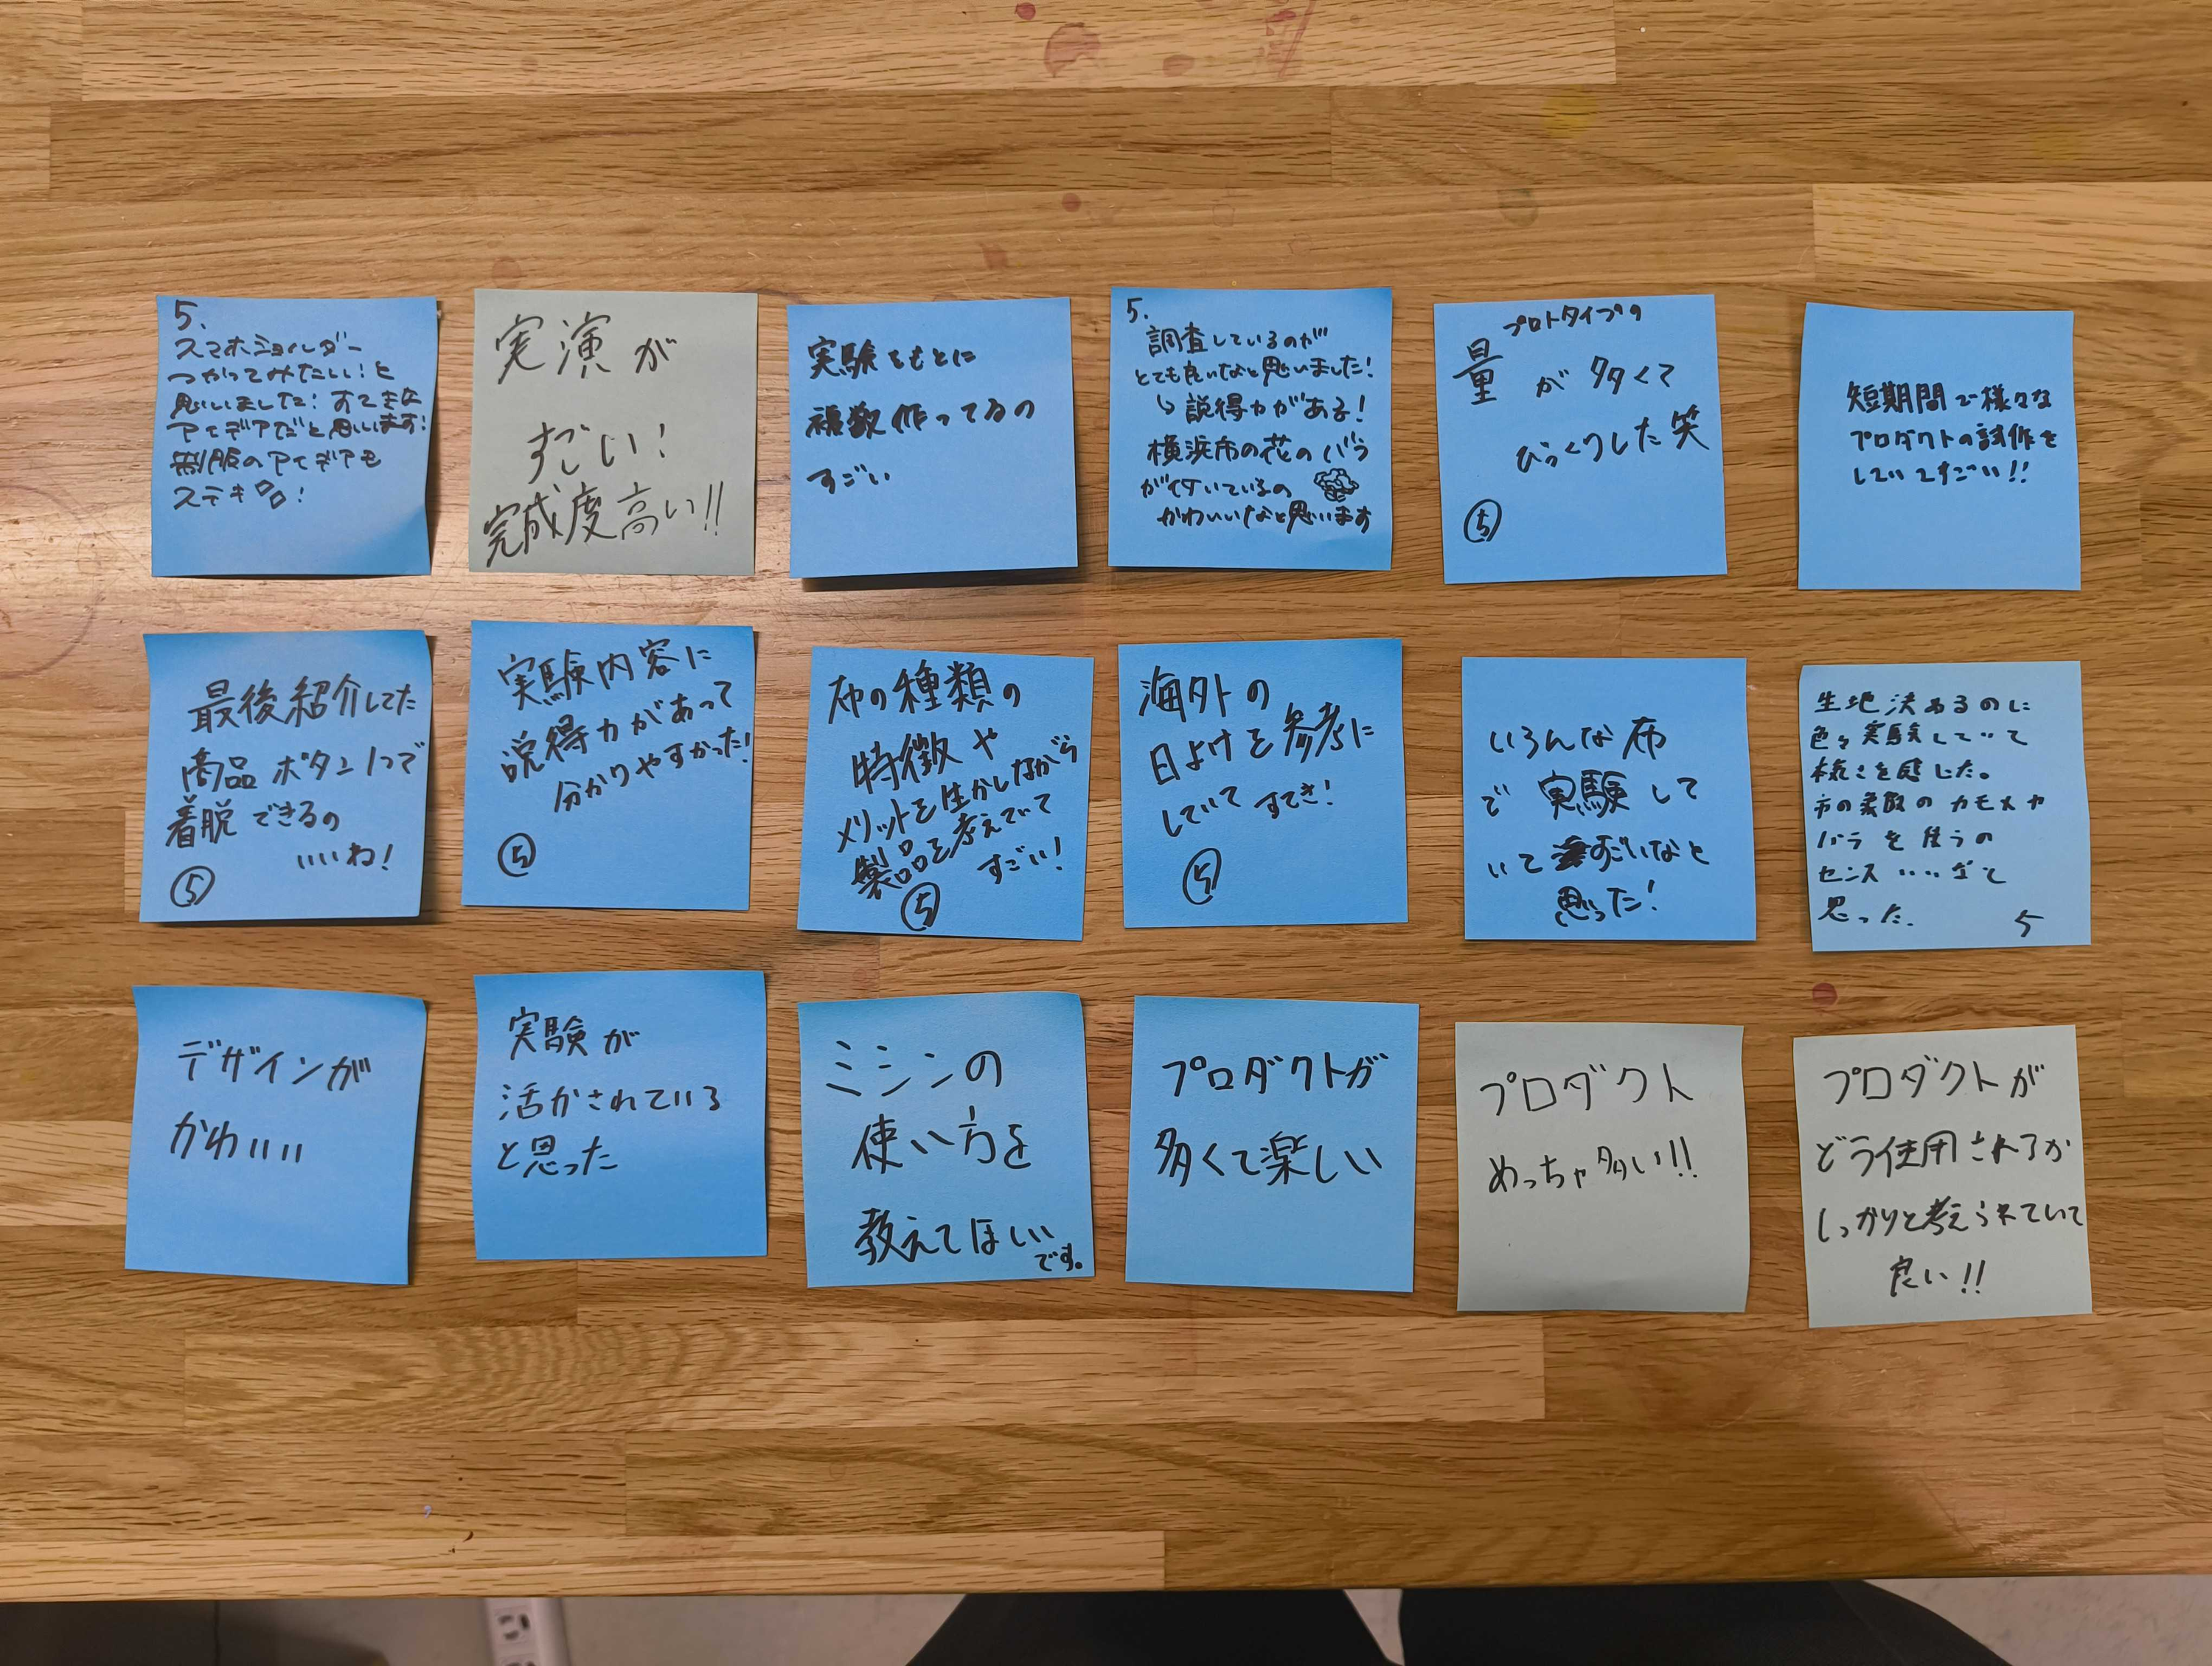 5.
スマホショルダー
つかってみたい！と
思いました！すてきな
アイデアだと思います！
制服のアイデアも
ステキ！
実演が
すごい！
完成度高い!!
実験をもとに
複数作ってるの
すごい
5.
調査しているのが
とても良いなと思いました！
↳説得力がある！
横浜市の花のバラ
が付いているの
かわいいなと思います
プロトタイプの
量が多くて
びっくりした笑
⑤
短期間で様々な
プロダクトの試作を
していてすごい!!
最後紹介してた
商品ボタン1つで
着脱できるの
いいね！
⑤
実験内容に
説得力があって
分かりやすかった！
⑤
布の種類の
特徴や
メリットを生かしながら
製品を考えていて
すごい！
⑤
海外の
日よけを参考に
していてすてき！
⑤
いろんな布
で実験して
いてすごいなと
思った！
生地決めるのに
色々実験していて
本気さを感じた。
市の のカモメや
バラを使うの
センスいいなて
思った.
5
デザインが
かわいい
実験が
活かされている
と思った
ミシンの
使い方を
教えてほしい
です。
プロダクトが
多くて楽しい
プロダクト
めっちゃ多い!!
プロダクトが
どう使用されるか
しっかりと考えられていて
良い!!